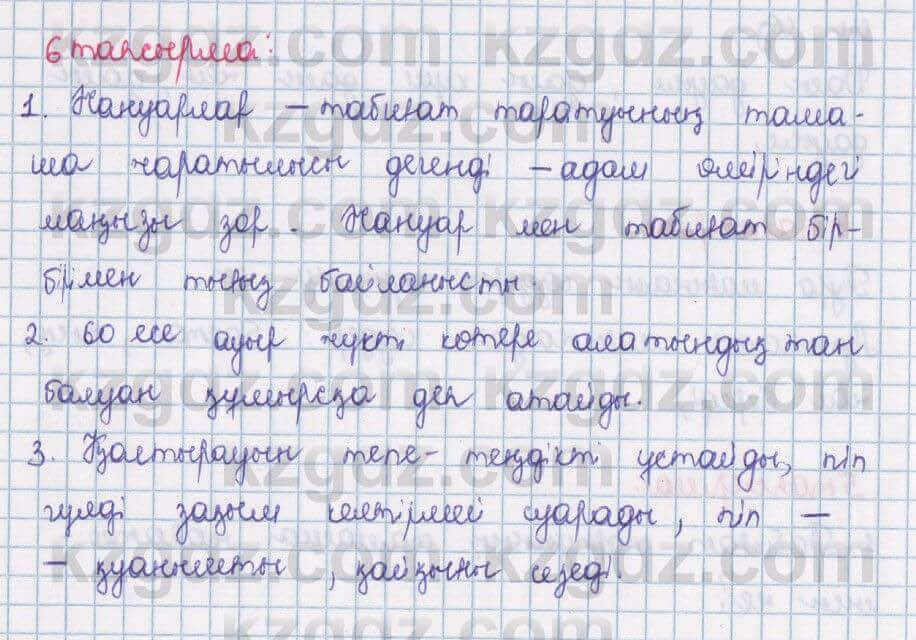 6 тапсырма:
1. Жануарлар – табиғат таратуының тама-
ша жаратылысы дегенді – адам өміріндегі
маңызы зор. Жануар мен табиғат бір-
бірімен тығыз байланысты
2. 60 есе ауыр жүкті көтере алатындықтан
балуан құмырсқа деп атайды.
3. Қалтырауын тепе-теңдікті ұстайды, піл
гүлді зақым келтірмей суарады, піл –
– қуанышты, қайғыны сезеді.
kzgdz.com